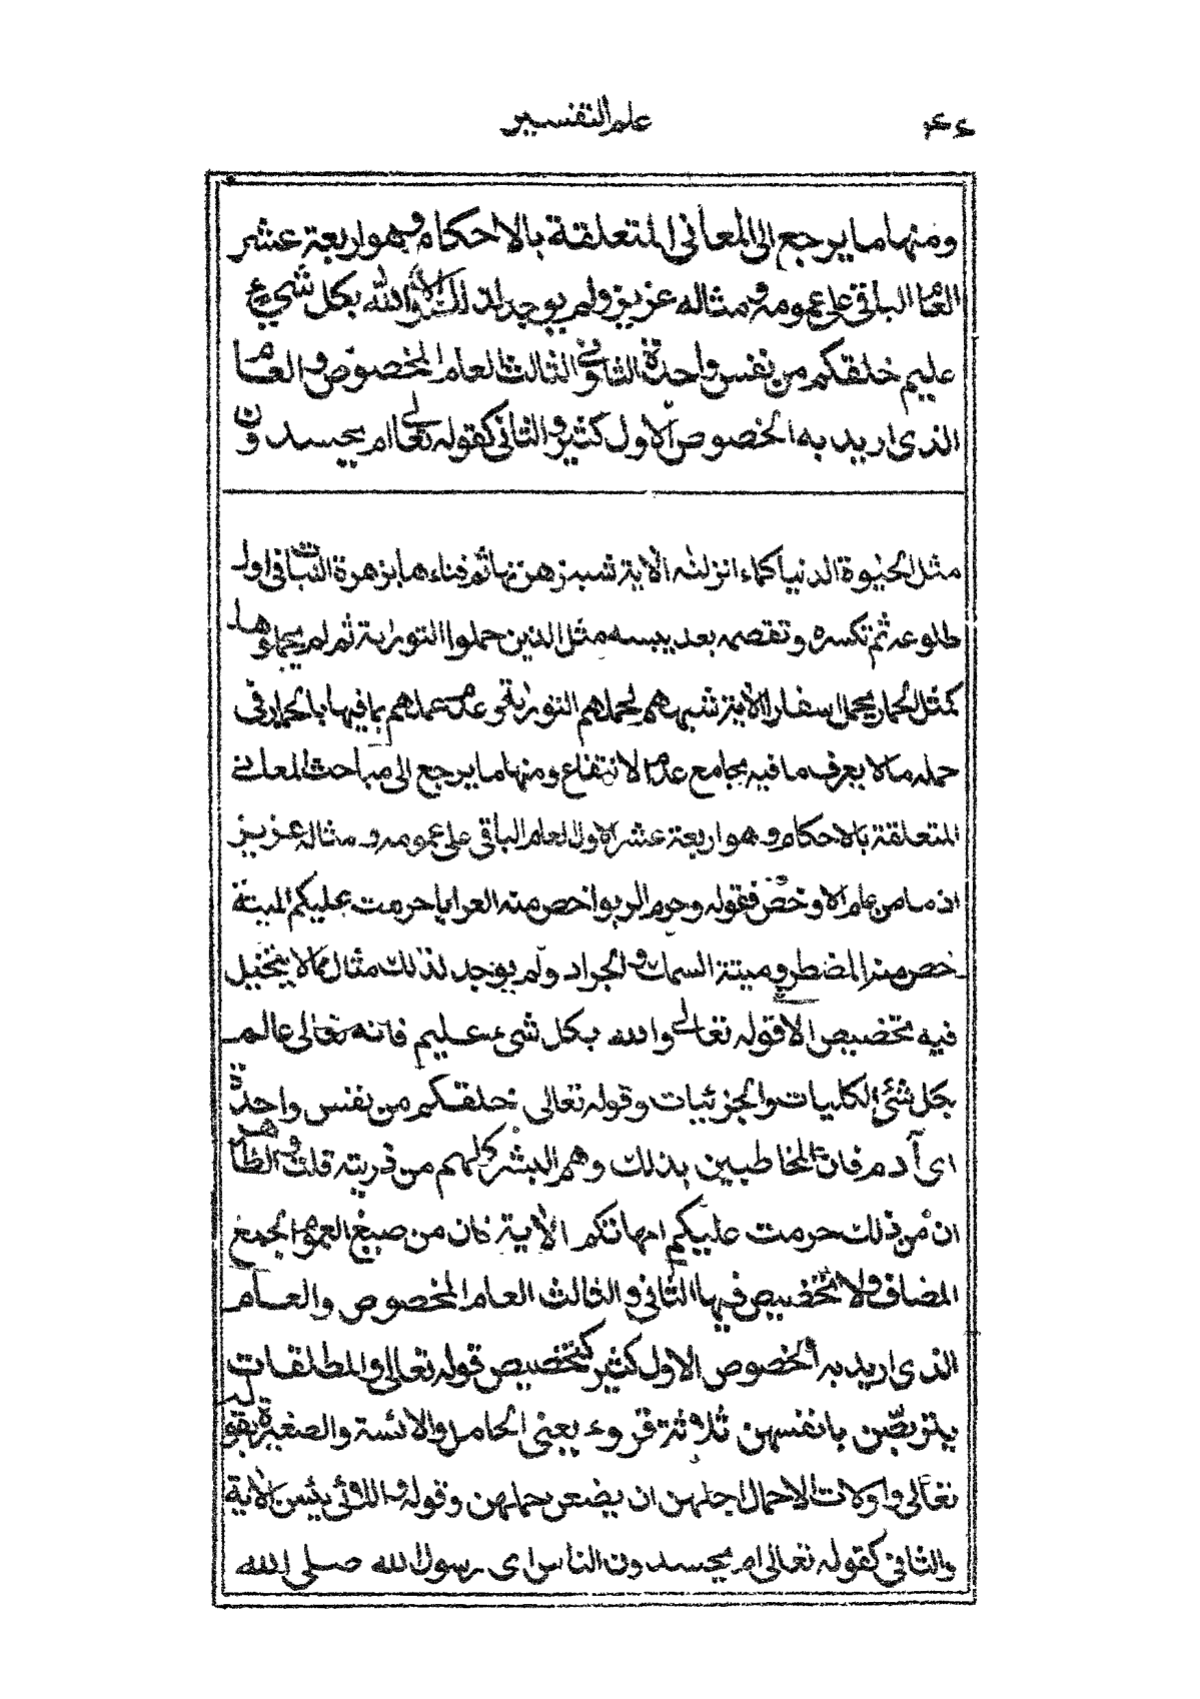 علم التفسير
٤٤
ومنها ما يرجع الى المعانى المتعلقة بالاحكام وهو اربعة عشر
العام الباقى على عمومه ومثاله عزيز ولم يوجد لذلك الا والله بكل شيئ
عليم خلقكم من نفس واحدة الثانى والثالث العام المخصوص والعام
الذى اريد به الخصوص الاول كثير والثانى كقوله تعالى ام يحسدون
مثل الحيوة الدنيا كماء انزلنه الاية شبه زهرتها ثم فناءها بزهرة النبات فى اول
طلوعه ثم تكسره وتقصمه بعد يبسه مثل الذين حملوا التورية ثم لم يحملوها
كمثل الحمار يحمل اسفارا الاية شبههم لحملهم التورية وعدم عملهم بما فيها بالحمار فى
حمله مالا يعرف ما فيه بجامع عدم الانتفاع ومنها ما يرجع الى مباحث المعانى
المتعلقة بالاحكام وهو اربعة عشر الاول العام الباقى على عمومه ومثاله عزيز
اذ ما من عام الا وخص فقوله وحرم الربوا خص منه العرايا حرمت عليكم الميتة
خص منه المضطر وميتة السمك والجراد ولم يوجد لذلك مثال مما لا يتخيل
فيه تخصيص الا قوله تعالى والله بكل شىء عليم فانه تعالى عالم
بكل شئ الكليات والجزئيات وقوله تعالى خلقكم من نفس واحدة
اى آدم فان المخاطبين بذلك وهم البشر كلهم من ذريته قلت والظاهر
ان من ذلك حرمت عليكم امهاتكم الاية فان من صيغ العموم الجمع
المضاف ولا تخصيص فيها الثانى والثالث العام المخصوص والعام
الذى اريد به الخصوص الاول كثير كتخصيص قوله تعالى والمطلقات
يتربصن بانفسهن ثلاثة قروء يعنى الحامل والائسة والصغيرة بقوله
تعالى واولات الاحمال اجلهن ان يضعن حملهن وقوله والئى يئسن الاية
والثانى كقوله تعالى ام يحسدون الناس اى رسول الله صلى الله